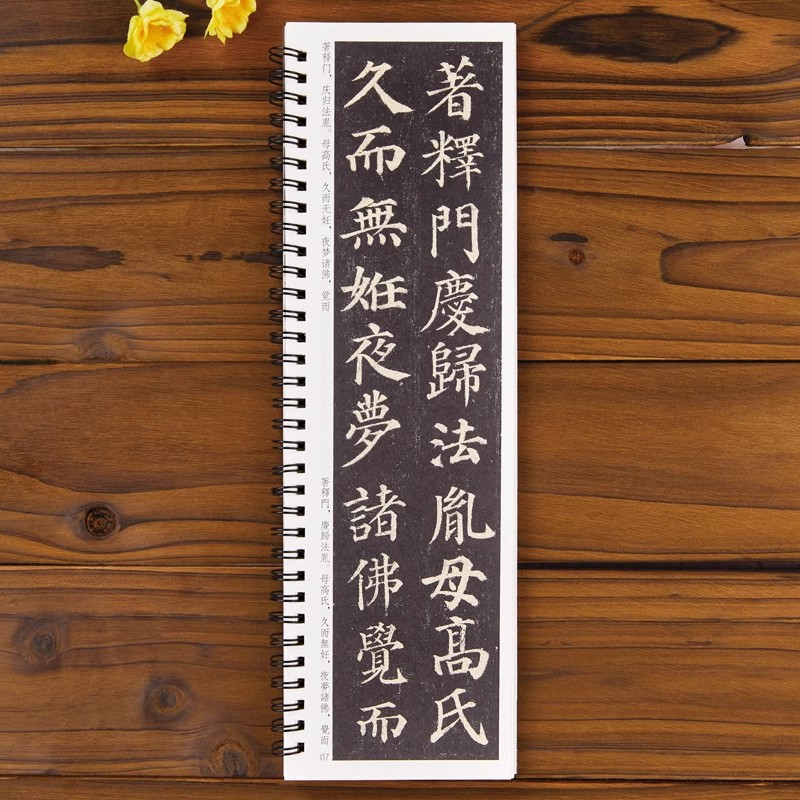 著釋門慶歸法胤母高氏
久而無妊夜夢諸佛覺而
著释门，庆归法胤。母高氏，久而无妊，夜梦诸佛，觉而
著釋門，慶歸法胤。母高氏，久而無妊，夜夢諸佛，覺而
07